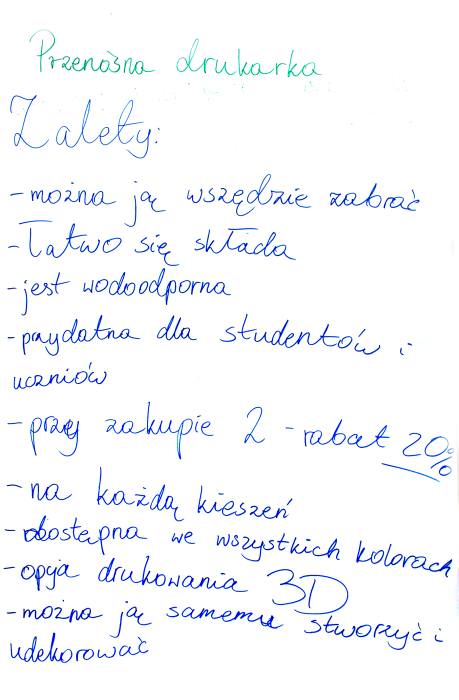 Przenośna drukarka
Zalety:
- można ją wszędzie zabrać
- łatwo się składa
- jest wodoodporna
- przydatna dla studentów i
uczniów
- przy zakupie 2 - rabat 20%
- na każdą kieszeń
- dostępna we wszystkich kolorach
- opcja drukowania 3D
- można ją samemu stworzyć i
udekorować